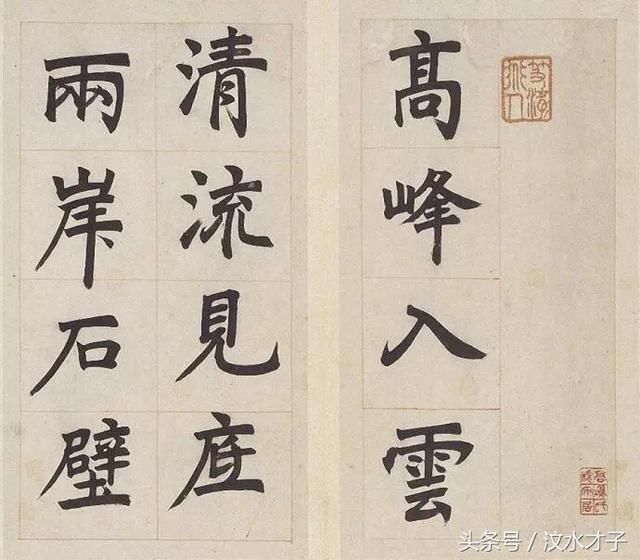 高峰入雲
清流見底
兩岸石壁
头条号 / 汶水才子